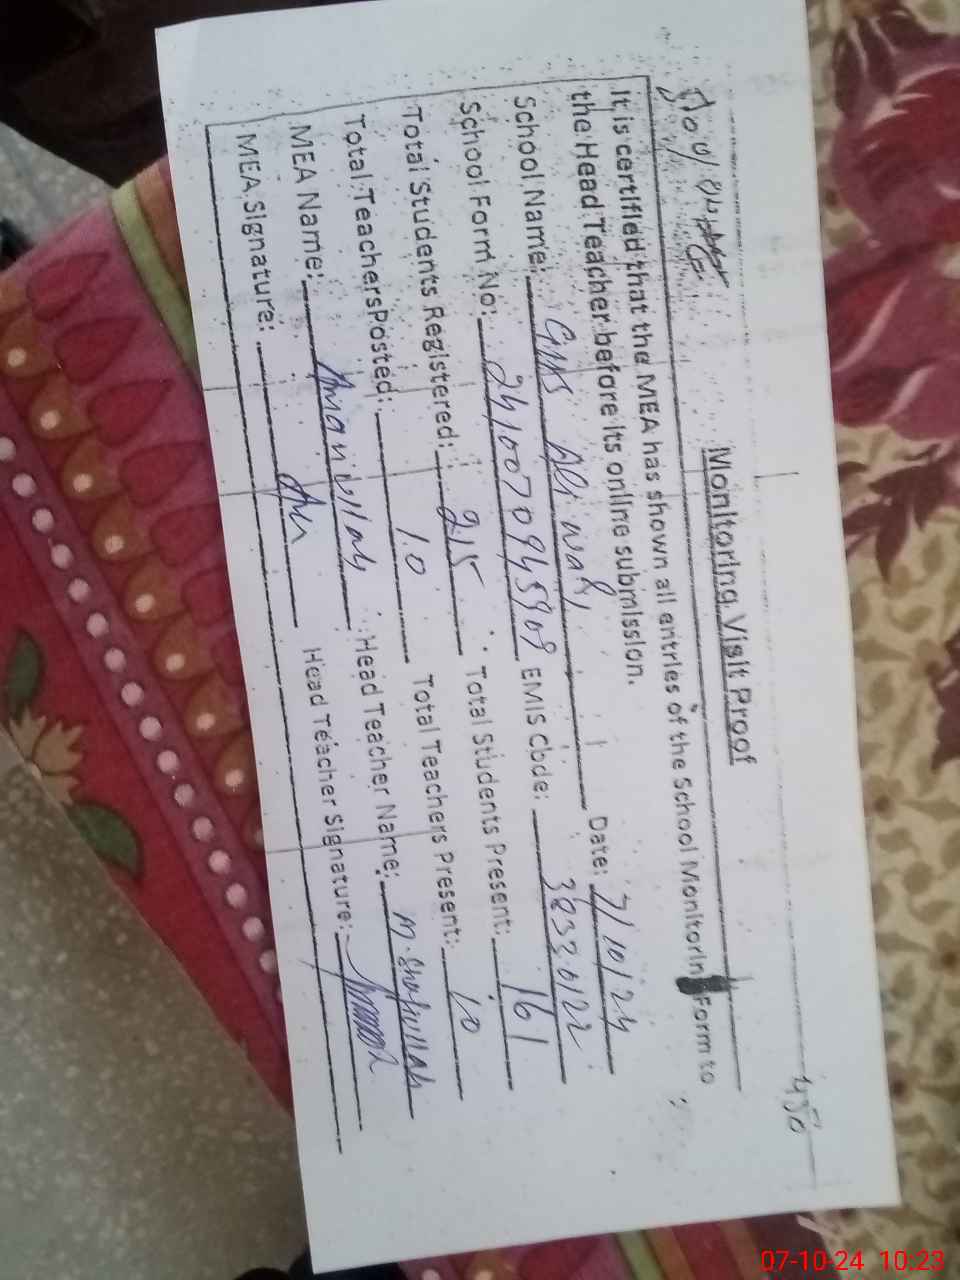 450
Monitoring Visit Proof
It is certified that the MEA has shown all entries of the School Monitorin Form to
the Head Teacher before its online submission.
School Name: GMS Ali wal, Date: 7/10/24
School Form No: EMIS Code: 38330122
Total Students Registered: 215 Total Students Present: 161
Total Teachers Posted: 10 Total Teachers Present: 10
MEA Name: Amanullah Head Teacher Name: M. Shafiullah
MEA Signature: Head Teacher Signature:
07-10-24 10:23